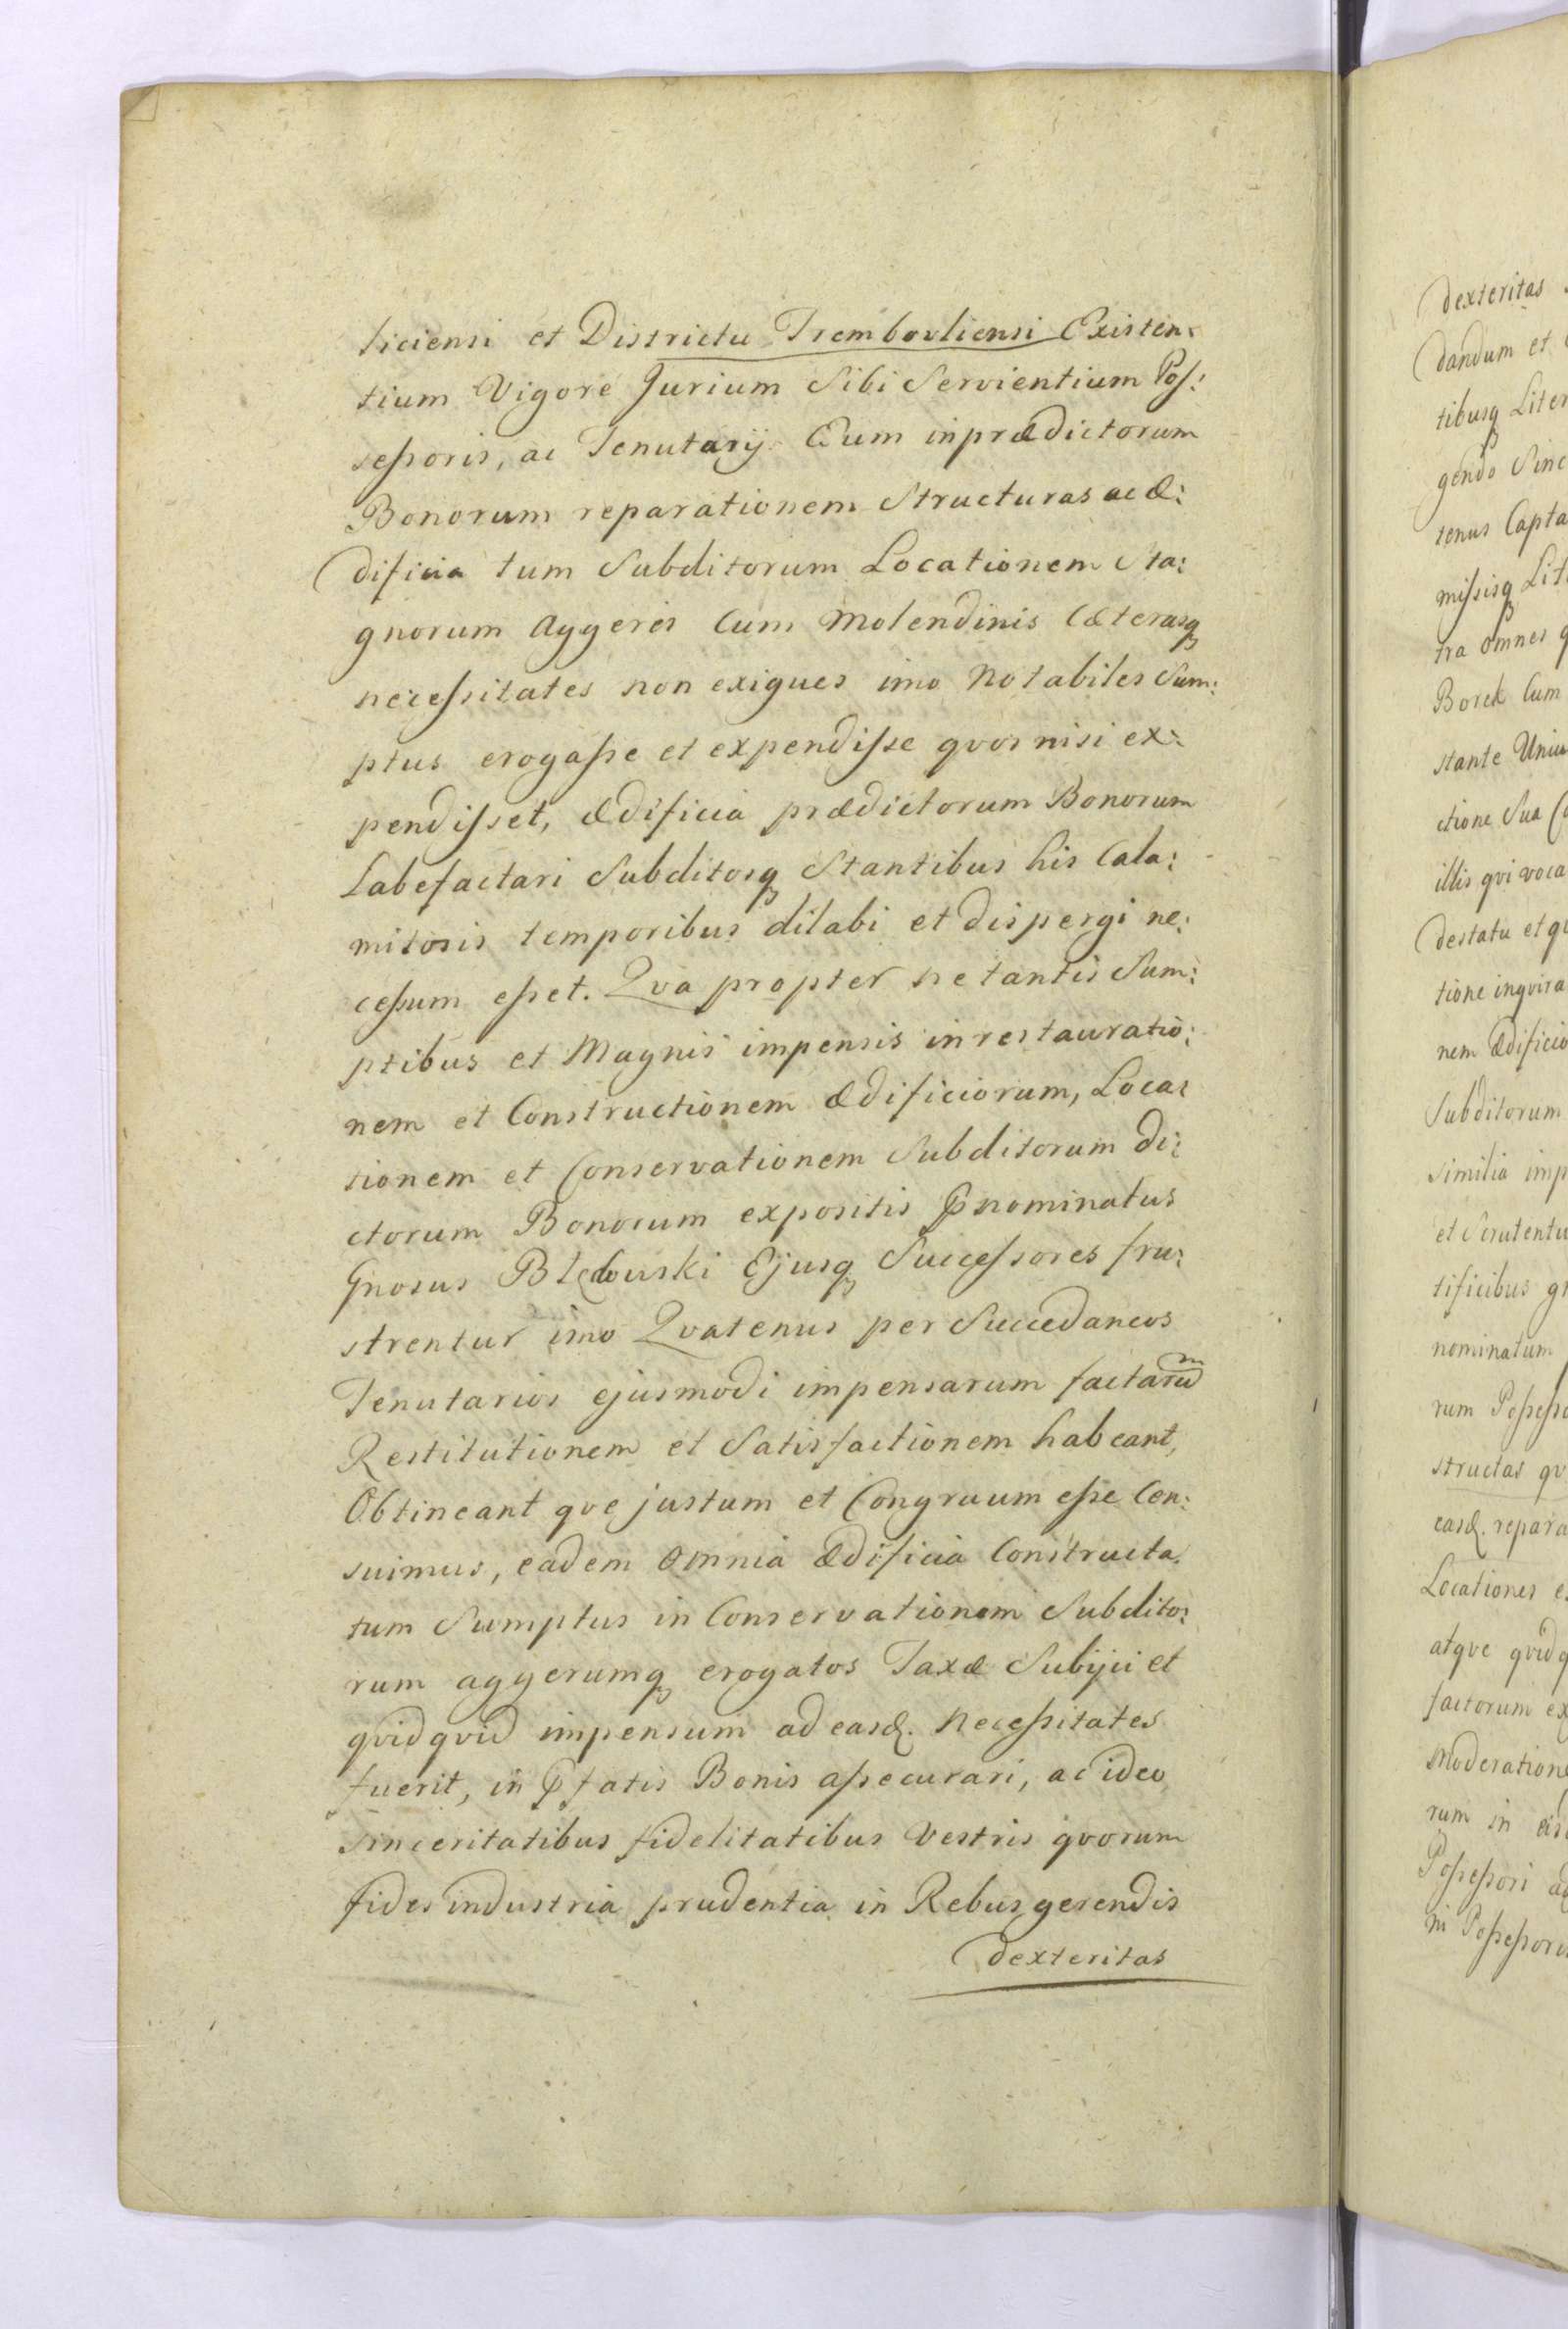 ticiensi et Districtu Trembovliensi Existen:
tium Vigore Jurium Sibi Servientium Pos:
sessoris, ac Tenutarij. Eum in prædictorum
Bonorum reparationem Structuras ac æ:
dificia tum Subditorum Locationem Sta:
gnorum Aggeres Cum Molendinis Cæterasq
necessitates non exigues imo Notabiles Sum:
ptus erogasse et expendisse qvos nisi ex:
pendisset, ædificia prædictorum Bonorum
Labefactari Subditosq Stantibus his Cala:
mitosis temporibus dilabi et dispergi ne:
cessum esset. Qva propter ne tantis Sum:
ptibus et Magnis impensis in restauratio:
nem et Constructionem ædificiorum, Loca:
tionem et Conservationem Subditorum di:
ctorum Bonorum expositis Pnominatus
Gnosus Błędowski Ejusq Successores fru:
strentur imo Qvatenus per Succedaneos
Tenutarios ejusmodi impensarum factarum
Restitutionem et Satisfactionem habeant,
Obtineant qve justum et Congruum esse Cen:
suimus, eadem Omnia ædificia Constructa,
tum Sumptus in Conservationem Subdito:
rum aggerumq erogatos Taxæ Subijci et
qvidqvid impensum ad easd. Necessitates
fuerit, in Pfatis Bonis assecurari, ac ideo
Sinceritatibus fidelitatibus Vestris qvorum
fides industria prudentia in Rebus gerendis
dexteritas
dexteritas
dandum et
tibusq Liter
gendo Sinc
tenus Capta
missisq Lit
tra omnes q
Borek Cum
stante Univ
ctione Sua
illis qvi voca
destatu et qv
tione inqvira
nem ædificio
Subditorum
Similia imp
et Scrutentu
tificibus gn
nominatum
rum Possesso
structas qv
easd. repara
Locationes e
atqve qvidq
factorum ex
Moderatione
rum in eis
Possessori ad
ni Possessori